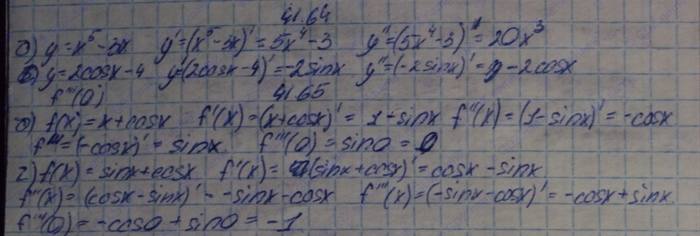 41.64
б) y=x⁵-3x y'=(x⁵-3x)'=5x⁴-3 y''=(5x⁴-3)'=20x³
в) y=2cosx-4 y=(2cosx-4)'=-2sinx y''=(-2sinx)'=-2cosx
f'''(0) 41.65
б) f(x)=x+cosx f'(x)=(x+cosx)'=1-sinx f''(x)=(1-sinx)'=-cosx
f'''=(-cosx)'=sinx f'''(0)=sin0=0
г) f(x)=sinx+cosx f'(x)=(sinx+cosx)'=cosx-sinx
f''(x)=(cosx-sinx)'--sinx-cosx f'''(x)=(-sinx-cosx)'=-cosx+sinx
f'''(0)=-cos0+sin0=-1